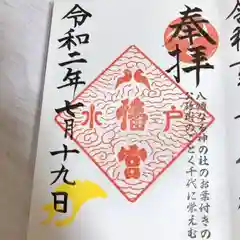 奉拝
八幡なる神の社のお葉付きの
公孫樹のごとく千代に栄えむ
水戸
八幡宮
令和二年七月十九日